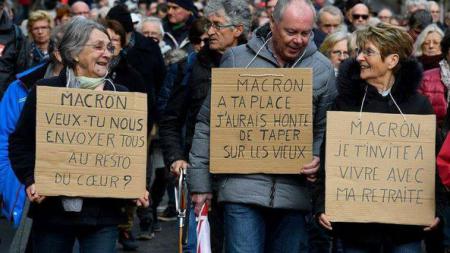 MACRON
VEUX-TU NOUS
ENVOYER TOUS
AU RESTO
DU CŒUR?
MACRON
A TA PLACE
J'AURAIS HONTE
DE TAPER
SUR LES VIEUX
MACRON
JE T'INVITE A
VIVRE AVEC
MA RETRAITE